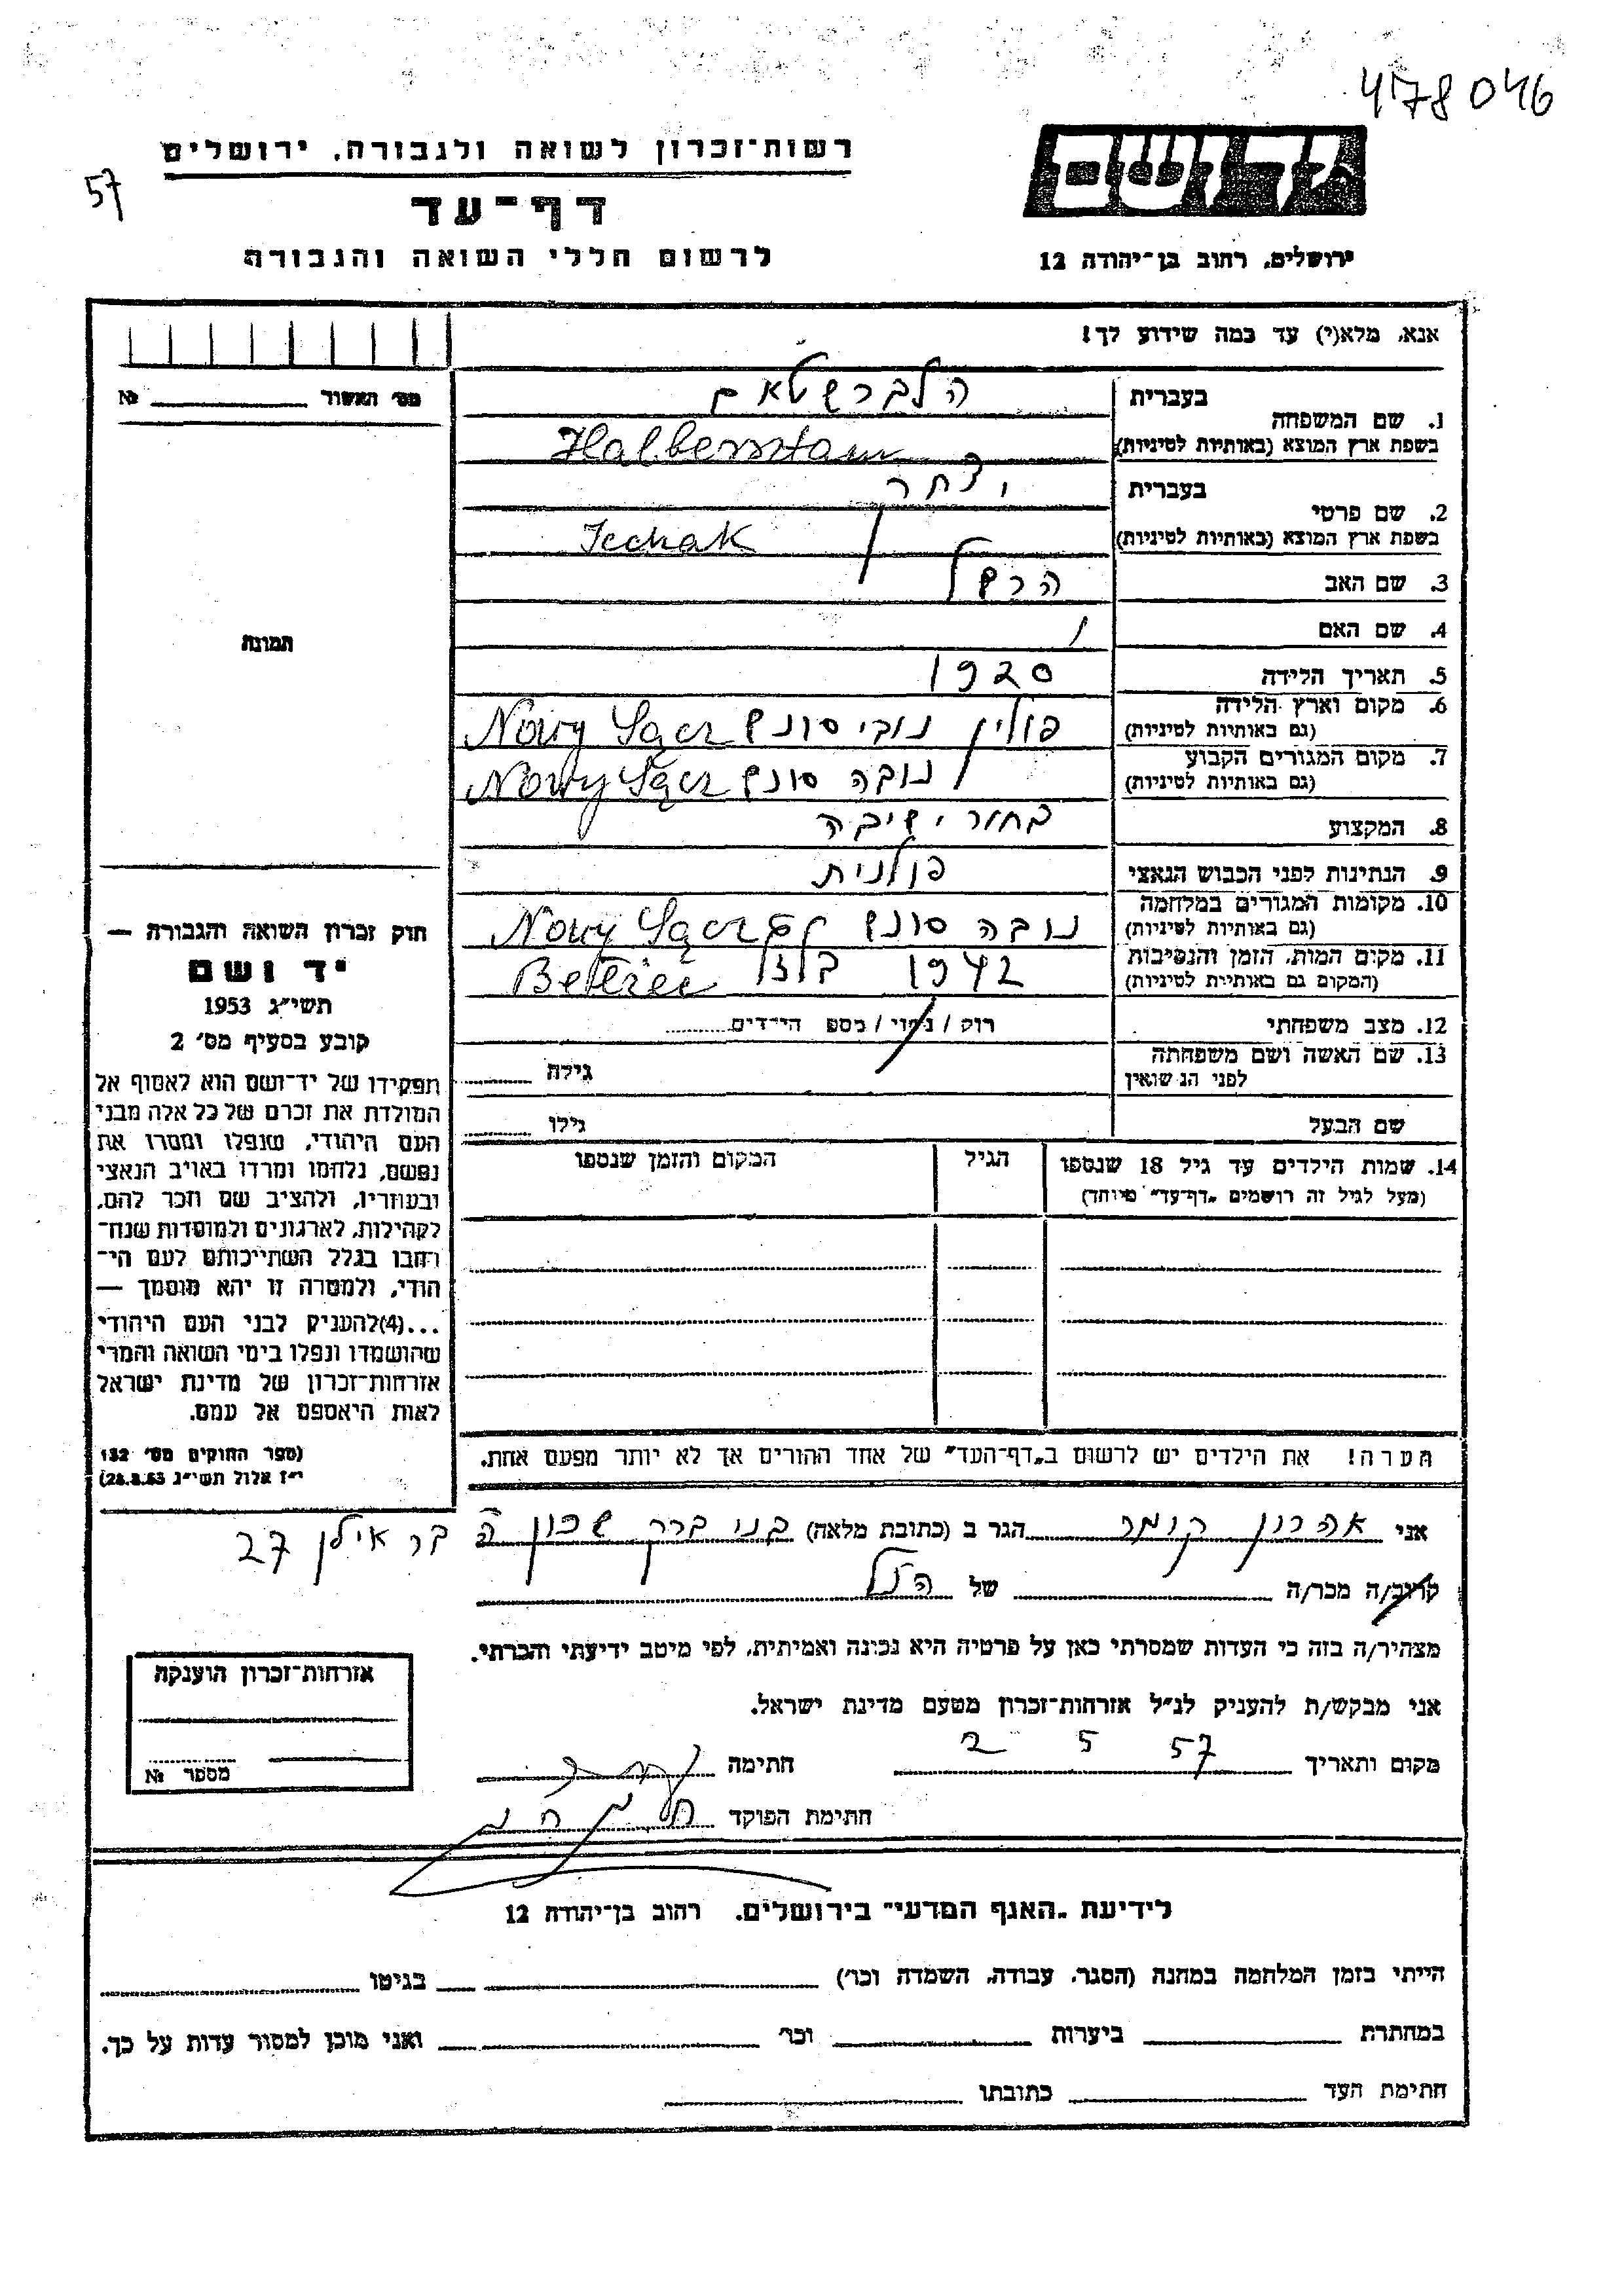 478046
רשות־זכרון לשואה ולגבורה, ירושלים
57
דף־עד
לרשום חללי השואה והגבורה
יד ושם
ירושלים, רחוב בן־יהודה 12
אנא, מלא(י) עד כמה שידוע לך!
מס׳ האשור № 
1. שם המשפחה
בעברית הלברשטאם
בשפת ארץ המוצא (באותיות לטיניות) Halberstam
2. שם פרטי
בעברית יצחק
בשפת ארץ המוצא (באותיות לטיניות) Icchak
3. שם האב הרשל
4. שם האם /
5. תאריך הלידה 1920
6. מקום וארץ הלידה
(גם באותיות לטיניות) פולין נובי סונץ Nowy Sącz
7. מקום המגורים הקבוע
(גם באותיות לטיניות) נובה סונץ Nowy Sącz
8. המקצוע בחור ישיבה
9. הנתינות לפני הכבוש הנאצי פולנית
10. מקומות המגורים במלחמה
(גם באותיות לטיניות) נובה סונץ Nowy Sącz
11. מקום המות, הזמן והנסיבות
(המקום גם באותיות לטיניות) 1942 בלזץ Bełżec
12. מצב משפחתי רווק / נשוי / מספ הילדים
13. שם האשה ושם משפחתה
לפני הנשואין גילה
שם הבעל גילו
14. שמות הילדים עד גיל 18 שנספו
(מעל לגיל זה רושמים „דף־עד״ מיוחד)
הגיל
המקום והזמן שנספו
הערה! את הילדים יש לרשום ב„דף־העד״ של אחד ההורים אך לא יותר מפעם אחת.
תמונה
חוק זכרון השואה והגבורה —
יד ושם
תשי״ג 1953
קובע בסעיף מס׳ 2
תפקידו של יד־ושם הוא לאסוף אל
המולדת את זכרם של כל אלה מבני
העם היהודי, שנפלו ומסרו את
נפשם, נלחמו ומרדו באויב הנאצי
ובעוזריו, ולהציב שם וזכר להם,
לקהילות, לארגונים ולמוסדות שנח־
רחבו בגלל השתייכותם לעם הי־
הודי, ולמטרה זו יהא מוסמך —
...(4)להעניק לבני העם היהודי
שהושמדו ונפלו בימי השואה והמרי
אזרחות־זכרון של מדינת ישראל
לאות היאספם אל עמם.
(ספר החוקים מס׳ 132
י״ז אלול תשי״ג 28.8.53)
אני אהרון קומר הגר ב (כתובת מלאה) בני ברק שכון ה בר אילן 27
קרוב/ה מכר/ה של הנ״ל
מצהיר/ה בזה כי העדות שמסרתי כאן על פרטיה היא נכונה ואמיתית, לפי מיטב ידיעתי והכרתי.
אני מבקש/ת להעניק לנ״ל אזרחות־זכרון מטעם מדינת ישראל.
מקום ותאריך 57 5 2 חתימה
חתימת הפוקד
אזרחות־זכרון הוענקה
מספר №
לידיעת „האגף המדעי״ בירושלים, רחוב בן־יהודה 12
הייתי בזמן המלחמה במחנה (הסגר, עבודה, השמדה וכו׳) בגיטו
במחתרת ביערות וכו׳ ואני מוכן למסור עדות על כך.
חתימת העד כתובתו